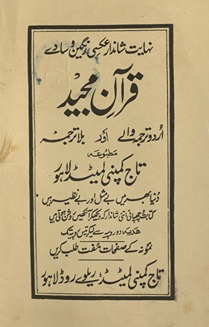 نہایت شاندار عکسی رنگین و سادے
قرآن مجید
اردو ترجمہ والے اور بلا ترجمہ
مطبوعہ
تاج کمپنی لمیٹڈ لاہور
دنیا بھر میں بے مثل اور بے نظیر ہیں
نمونہ کے صفحات مفت طلب کریں
تاج کمپنی لمیٹڈ ریلوے روڈ لاہور